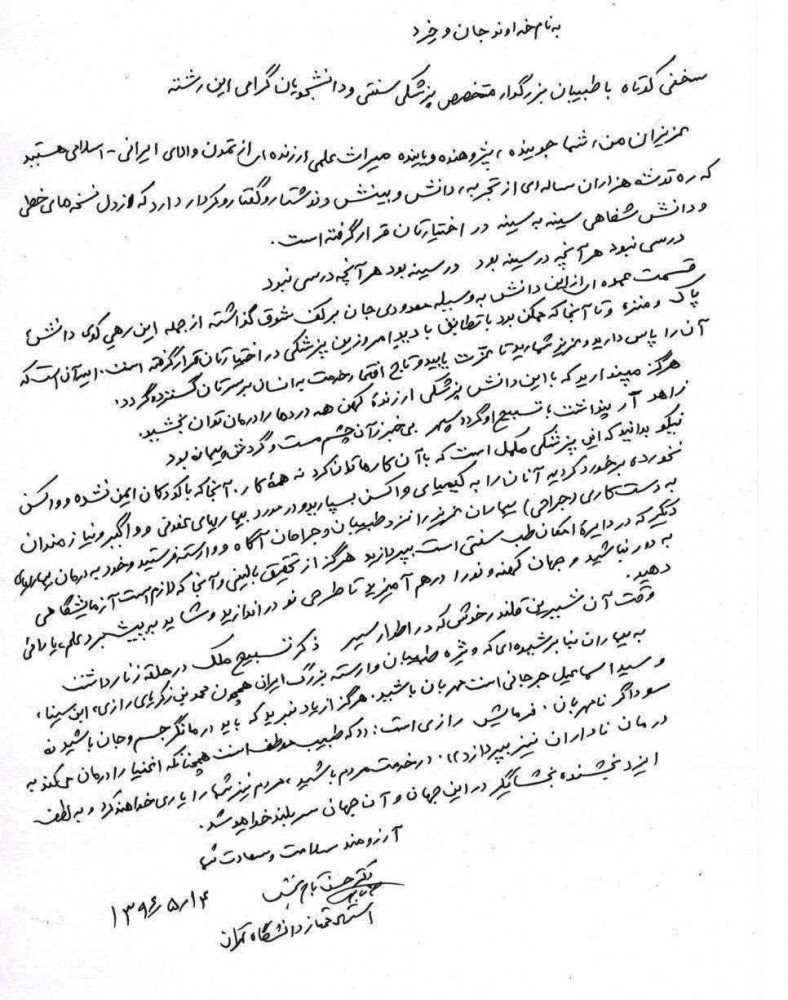 به نام خداوند جان و خرد
سخنی کوتاه با طبیبان بزرگوار متخصص پزشکی سنتی و دانشجویان گرامی این رشته
عزیزان من، شما جوینده، پژوهنده و یابنده میراث علمی ارزنده ای از تمدن والای ایرانی - اسلامی هستید
که ره توشه هزاران ساله ای از تجربه، دانش و بینش و نوشتار و گفتار و کردار دارد که از دل نسخه های خطی
و دانش شفاهی سینه به سینه در اختیارتان قرار گرفته است.
درسی نبود هر آنچه در سینه بود در سینه بود هر آنچه درسی نبود
قسمت عمده ای از این دانش به وسیله معدودی جان بر کف شوق گذاشته از جمله این رهی کوی دانش
پاک و منزه و تا آنجا که ممکن بود با تطابق با دید امروزین پزشکی در اختیارتان قرار گرفته است. امید آن است که
آن را پاس دارید و عزیز شمارید تا عزت یابید و تاج افتخار خدمت به انسان بر سرتان گسترده گردد.
هرگز مپندارید که با این دانش پزشکی ارزندهٔ کهن همه دردها را درمان توان بخشید.
زاهد ار پنداشت با تسبیح او گردد سپهر بی خبر زآن چشم مست و گردش پیمانه بود
نیکو بدانید که این پزشکی مکمل است که با آن کارها توان کرد نه همهٔ کار. آنجا که با کودکان ایمن نشده و واکسن
نخورده برخورد کردید آنان را به کیمیای واکسن بسپارید و در مورد بیماریهای عفونی و واگیر و نیازمندان
به دست کاری (جراحی) بیماران عزیز را نزد طبیبان و جراحان آگاه و وارسته فرستید و خود به درمان بیماریهای
دیگر که در دایرهٔ امکان طب سنتی است بپردازید هرگز از تحقیق بالینی و آنجا که لازم است آزمایشگاهی
به دور نباشید و جهان کهنه و نو را درهم آمیزید تا طرحی نو دراندازید و شاید به پیشبرد علم، یاری
دهید.
وقت آن شیرین قلندر خوش که در اطوار سیر ذکر تسبیح ملک در حلقهٔ زنار داشت
به بیماران نیز به شیوه ای که ویژه طبیبان وارسته بزرگ ایرانی همچون محمد بن زکریای رازی، ابن سینا،
و سید اسماعیل جرجانی است مهربان باشید. هرگز از یاد نبرید که باید درمانگر جسم و جان باشید نه
سوداگر نامهربان. فرمایش رازی است: «که طبیب موظف است همچنانکه اغنیا را درمان می کند به
درمان ناداران نیز بپردازد». در خدمت مردم باشید، مردم نیز شما را یاری خواهند کرد و به لطف
ایزد بخشنده بخشایگر در این جهان و آن جهان سربلند خواهید شد.
آرزومند سلامت و سعادت شما
دکتر حسن تاج بخش
استاد ممتاز دانشگاه تهران
۱۳۹۶/۵/۱۴